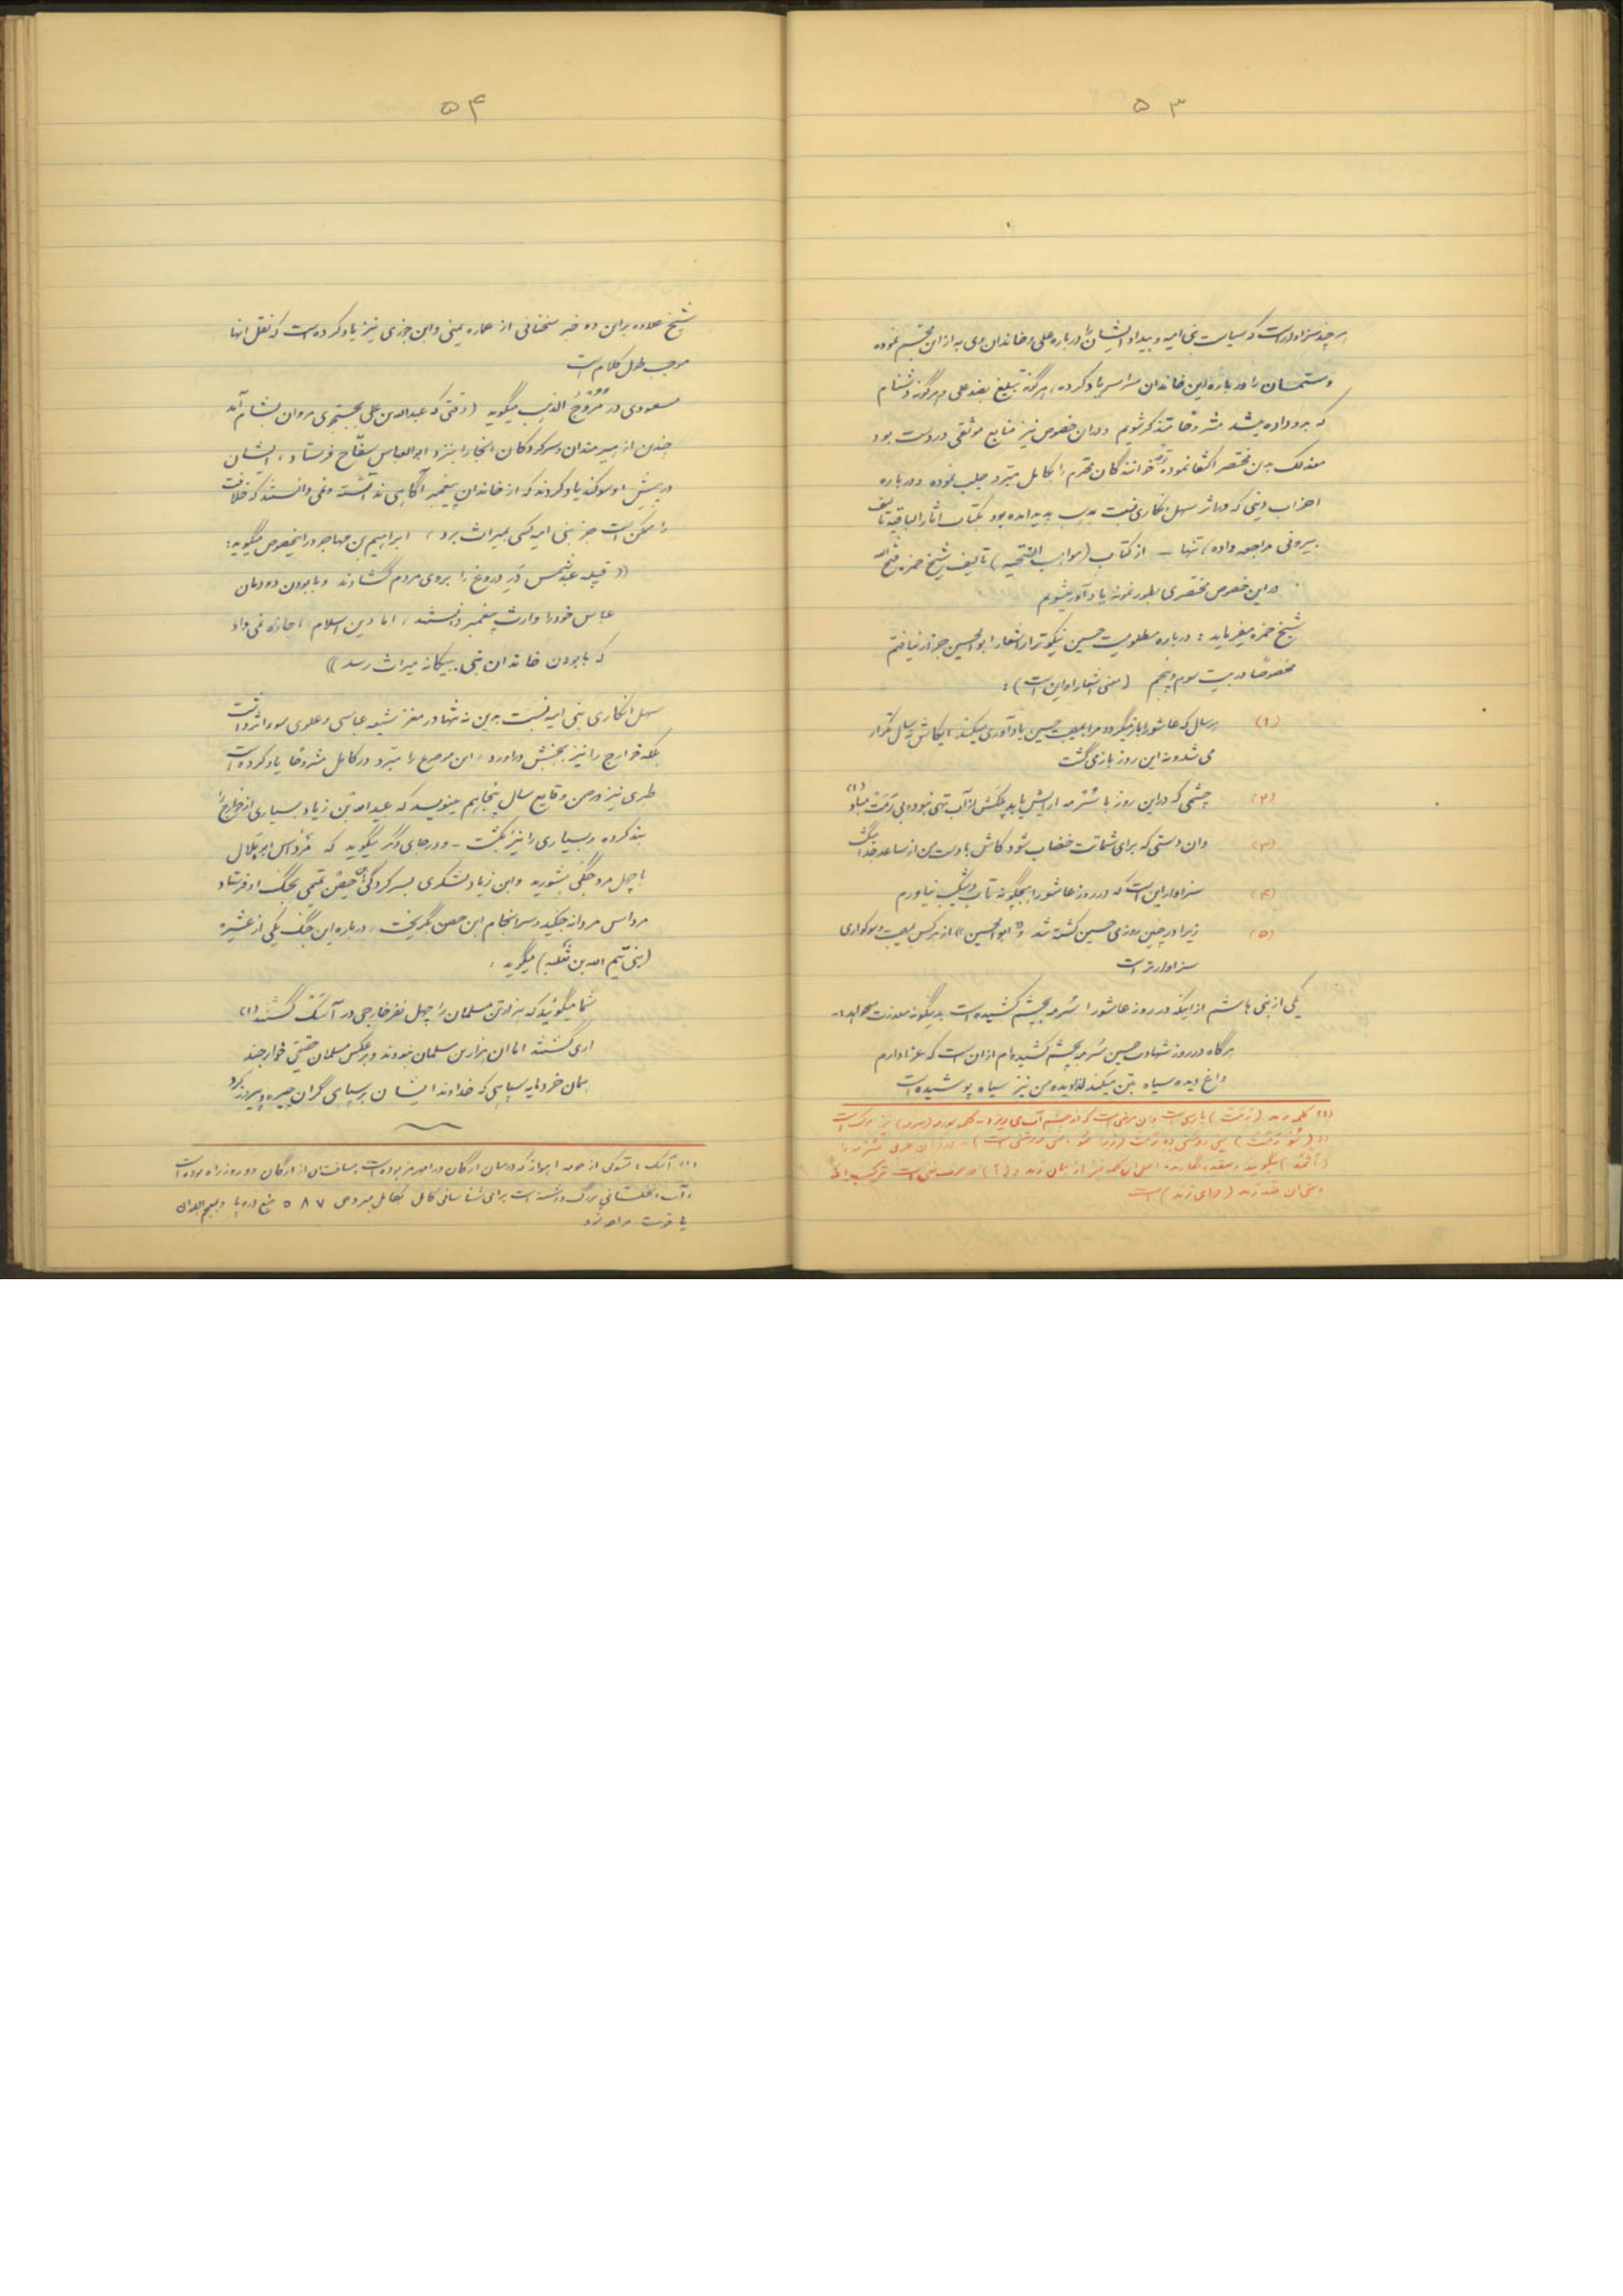 ۵۳
هر چند سزاوار است که سیاست بنی امیه و بیداد ایشان را درباره علی و خاندان وی به از این مجسم نموده
و ستمشان را درباره این خاندان سراسر یاد کرده، هرگونه تبلیغ بضد علی و هرگونه دشنام
که بدو داده میشد مشروحا متذکر شویم و در این خصوص نیز منابع موثقی در دست بود
معذلک بدین مختصر اکتفا نموده خوانندگان محترم را بکامل مبرد جلب نموده و درباره
احزاب دینی که در اثر سهل انگاری نسبت بدین پدید آمده بود بکتاب آثار الباقیه تالیف
بیرونی مراجعه داده، تنها - از کتاب (مواهب الفتحیه) تألیف شیخ حمزه فتح الله
در این خصوص مختصری بطور نمونه یادآور میشویم
شیخ حمزه میفرماید: درباره مظلومیت حسین نیکوتر از اشعار ابوالحسین جزار نیافتم
مخصوصا در بیت سوم و پنجم (معنی اشعار او این است):
(۱) هر سال که عاشورا باز میگردد مرا بمصیبت حسین یادآوری میکند، ایکاش سال تکرار
می شد و نه این روز باز می گشت
(۲) چشمی که در این روز با سُرمه آرایش یابد پلکش از آب تهی نبوده بی رَمَت مباد (۱)
(۳) وان دستی که برای شماتت خضاب شود کاش با دست من از ساعد جدا میگشت
(۴) سزاوار این است که در روز عاشورا هیچگونه تاب و شکیب نیاورم
(۵) زیرا در چنین روزی حسین کشته شد و «ابوالحسین» از هر کس بمصیبت و سوگواری
سزاوارتر است
یکی از بنی هاشم از اینکه در روز عاشورا سُرمه بچشم کشیده است بدینگونه معذرت میخواهد:
هرگاه در روز شهادت حسین سُرمه بچشم کشیده ام از آن است که عزادارم
داغ دیده سیاه بتن میکند لذا دیده من نیز سیاه پوشیده است
(۱) کلمه رمد پارسی است و آن مرضی است که از چشم آب می ریزد
۵۴
شیخ علاوه بر این دو خبر سخنانی از عماره یمنی و ابن جوزی نیز یاد کرده است که نقل آنها
موجب طول کلام است
مسعودی در مُرُوجُ الذهب میگوید (وقتی که عبدالله بن علی بجستجوی مروان بشام آمد
چندین از پیرمردان و سرکردگان آنجا را بنزد ابوالعباس سفّاح فرستاد، ایشان
در پیش او سوگند یاد کردند که از خاندان پیغمبر آگاهی نداشته و نمی دانستند که خلافت
را ممکن است جز بنی امیه کسی بمیراث برد، ابراهیم بن مهاجر در اینخصوص میگوید:
«قبیله عبد شمس در دروغ را بروی مردم گشادند و با بودن دودمان
عباس خود را وارث پیغمبر دانستند، اما دین اسلام اجازه نمی داد
که با بودن خاندان نبی بیگانه میراث رسد»
سهل انگاری بنی امیه نسبت بدین نه تنها در مغز شیعه عباسی و علوی سوء اثر داشت
بلکه خوارج را نیز بجنبش درآورد، این موضع را مبرد در کامل مشروحا یاد کرده است
طبری نیز در ضمن وقایع سال پنجاهم مینویسد که عبیدالله بن زیاد بسیاری از خوارج را
بند کرده و بسیاری را نیز بکشت - و در جای دیگر میگوید که مرداس ابو بلال
با چهل مرد جنگی بشورید و ابن زیاد لشکری بسرکردگی ابن حِصن تمیمی بجنگ او فرستاد
مرداس مردانه جنگید و سرانجام ابن حصن بگریخت، درباره این جنگ یکی از عشیره
(بنی تَیم الله بن ثعلبه) میگوید:
شما میگوئید که هزار تن مسلمان را چهل نفر خارجی در آسَک کُشتند (۱)
آری کشتند اما آن هزار تن مسلمان نبودند و برعکس مسلمان حقیقی خوارجند
همان خرد مایه سپاهی که خداوند ایشان بر سپاهی گران چیره و پیروز کرد
(۱) آسک: شهرکی از حومه اهواز که در میان ارگان و رامهرمز بوده است مسافت آن از ارگان دو روز راه بوده است
و آب و نخلستانی بزرگ داشته است برای شناسائی کامل بکامل مبرد ص ۵۸۷ طبع اروپا و معجم البلدان
یاقوت مراجعه شود